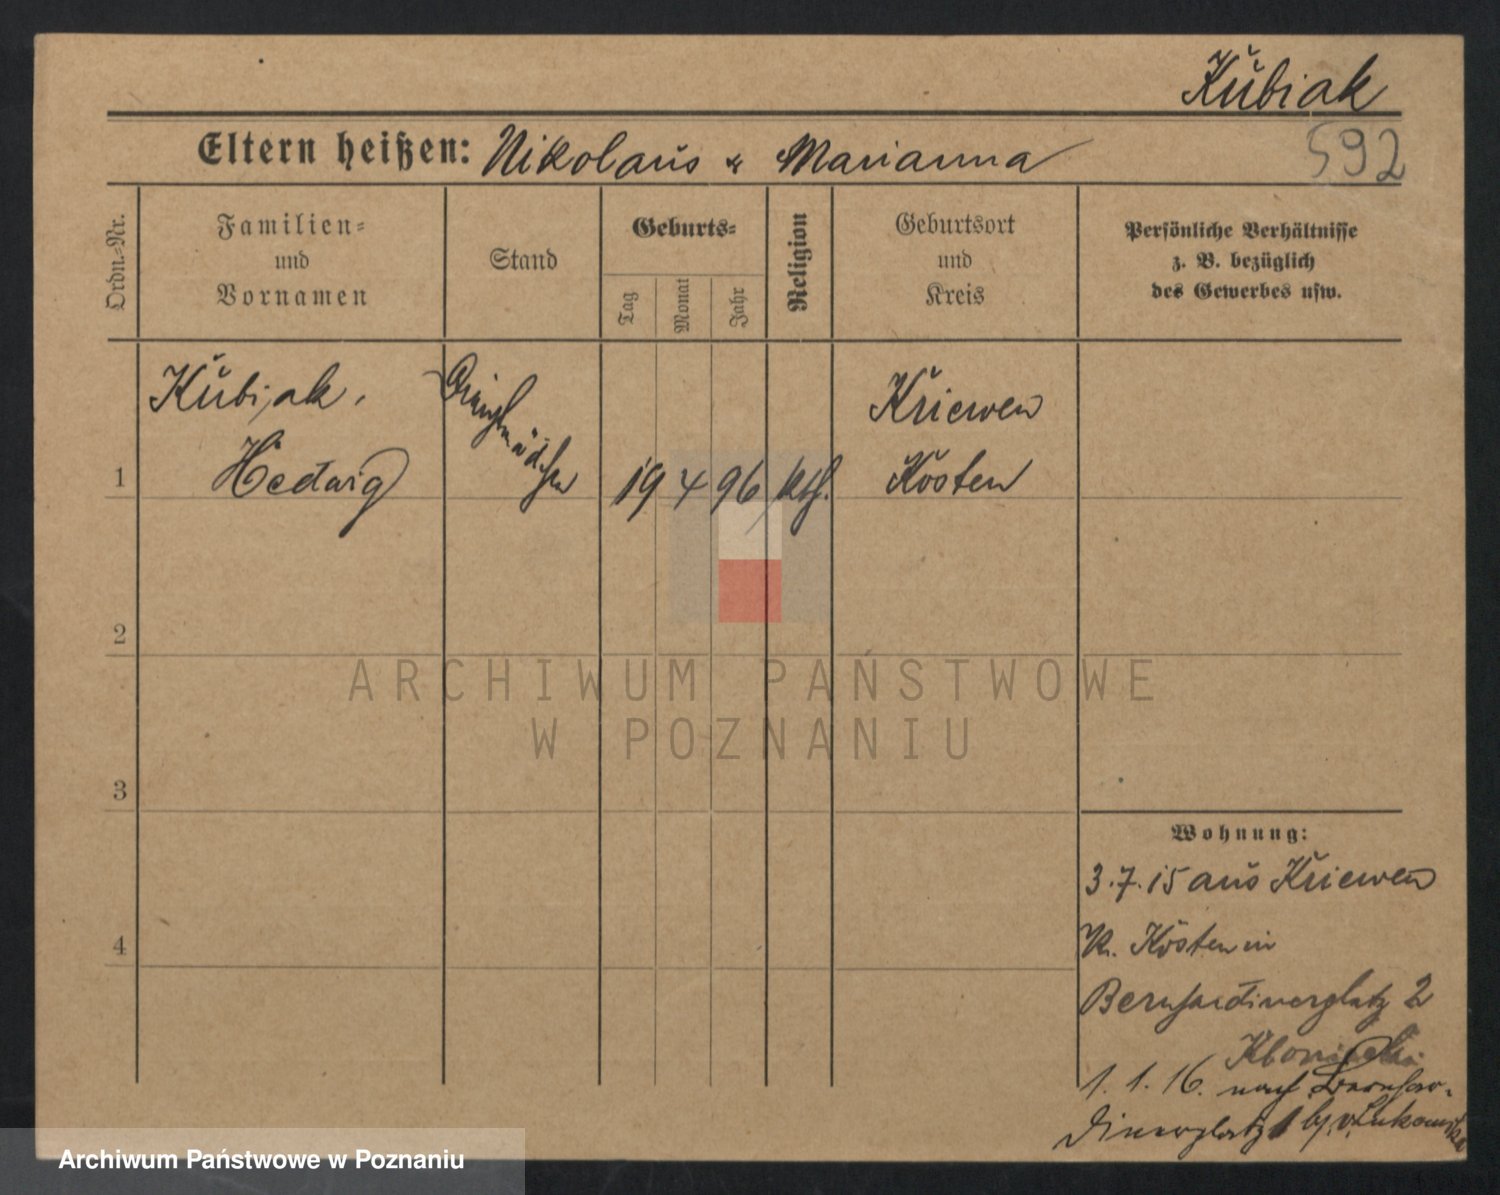 Kubiak
Eltern heißen: Nikolaus & Marianna
592
Ordn.-Nr.
Familien-
und
Vornamen
Stand
Geburts-
Tag
Monat
Jahr
Religion
Geburtsort
und
Kreis
Persönliche Verhältnisse
z. B. bezüglich
des Gewerbes usw.
Kubiak,
Hedwig
Dienstmädchen
1
19 4 96 kth.
Kriewen
Kosten
2
3
4
ARCHIWUM PAŃSTWOWE
W POZNANIU
Wohnung:
3.7.15 aus Kriewen
Kr. Kosten in
Bernhardinerplatz 2
1.1.16. nach Bernhar-
dinerplatz 1 b/
Archiwum Państwowe w Poznaniu